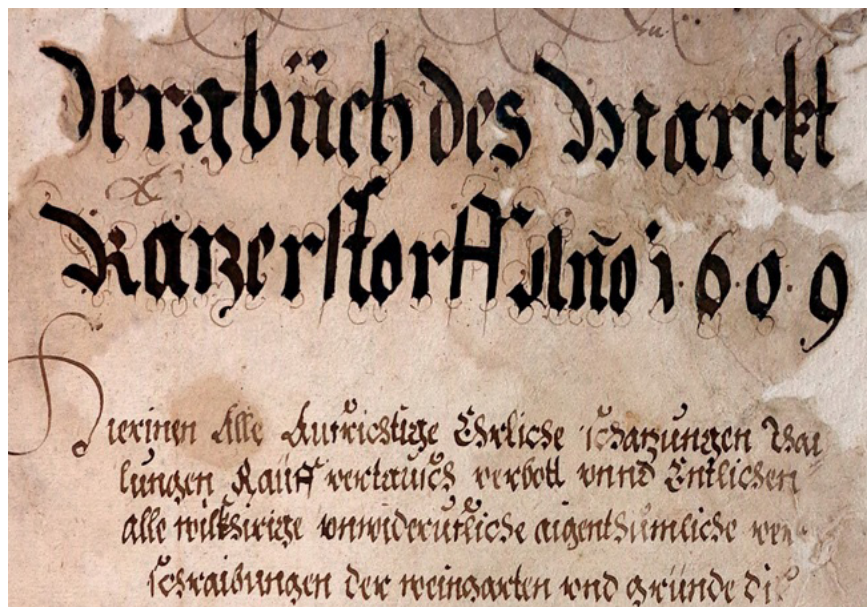 Pergbüch des Marckt
Razerstorff Año 1·6·0·9
Hierinen Alle Aufrichtige Ehrliche schazungen Thai
lungen Kauff vertausch verbott vnnd Entlichen
alle wilkhirige vnwiderufliche aigenthumliche ver
schraibungen der weingarten vnd gründe